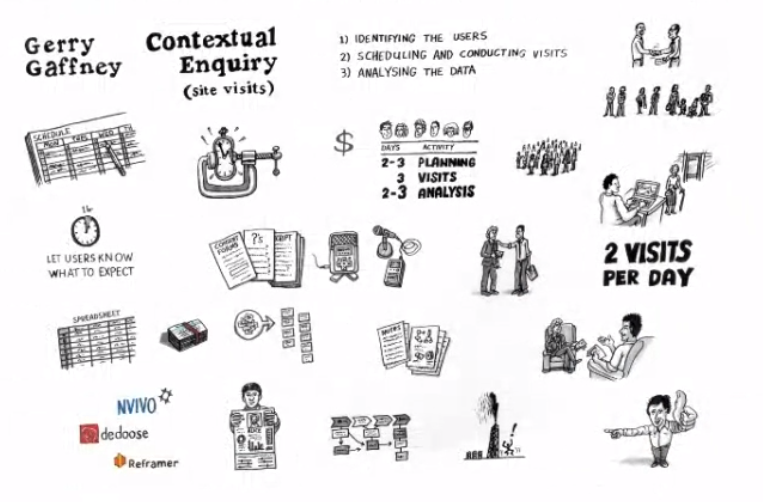 Gerry
Gaffney
Contextual
Enquiry
(site visits)
1) IDENTIFYING THE USERS
2) SCHEDULING AND CONDUCTING VISITS
3) ANALYSING THE DATA
SCHEDULE
MON TUES WED
$
DAYS ACTIVITY
2-3 PLANNING
3 VISITS
2-3 ANALYSIS
LET USERS KNOW
WHAT TO EXPECT
CONSENT
FORMS
?'s
SCRIPT
2 VISITS
PER DAY
SPREADSHEET
NOTES
NVIVO
dedoose
Reframer